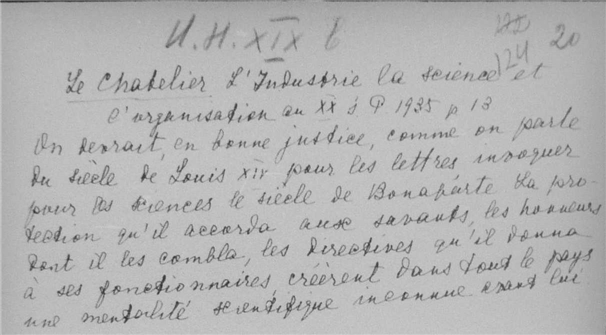 И.Н. XIX б
124 20
Le Chatelier L'Industrie la science et
l'organisation au XX s P 1935 p 13
On devrait, en bonne justice, comme on parle
du siècle de Louis XIV pour les lettres invoquer
pour les sciences le siècle de Bonaparte La pro-
tection qu'il accorda aux savants, les honneurs
dont il les combla, les directives qu'il donna
à ses fonctionnaires, créèrent dans tout le pays
une mentalité scientifique inconnue avant lui